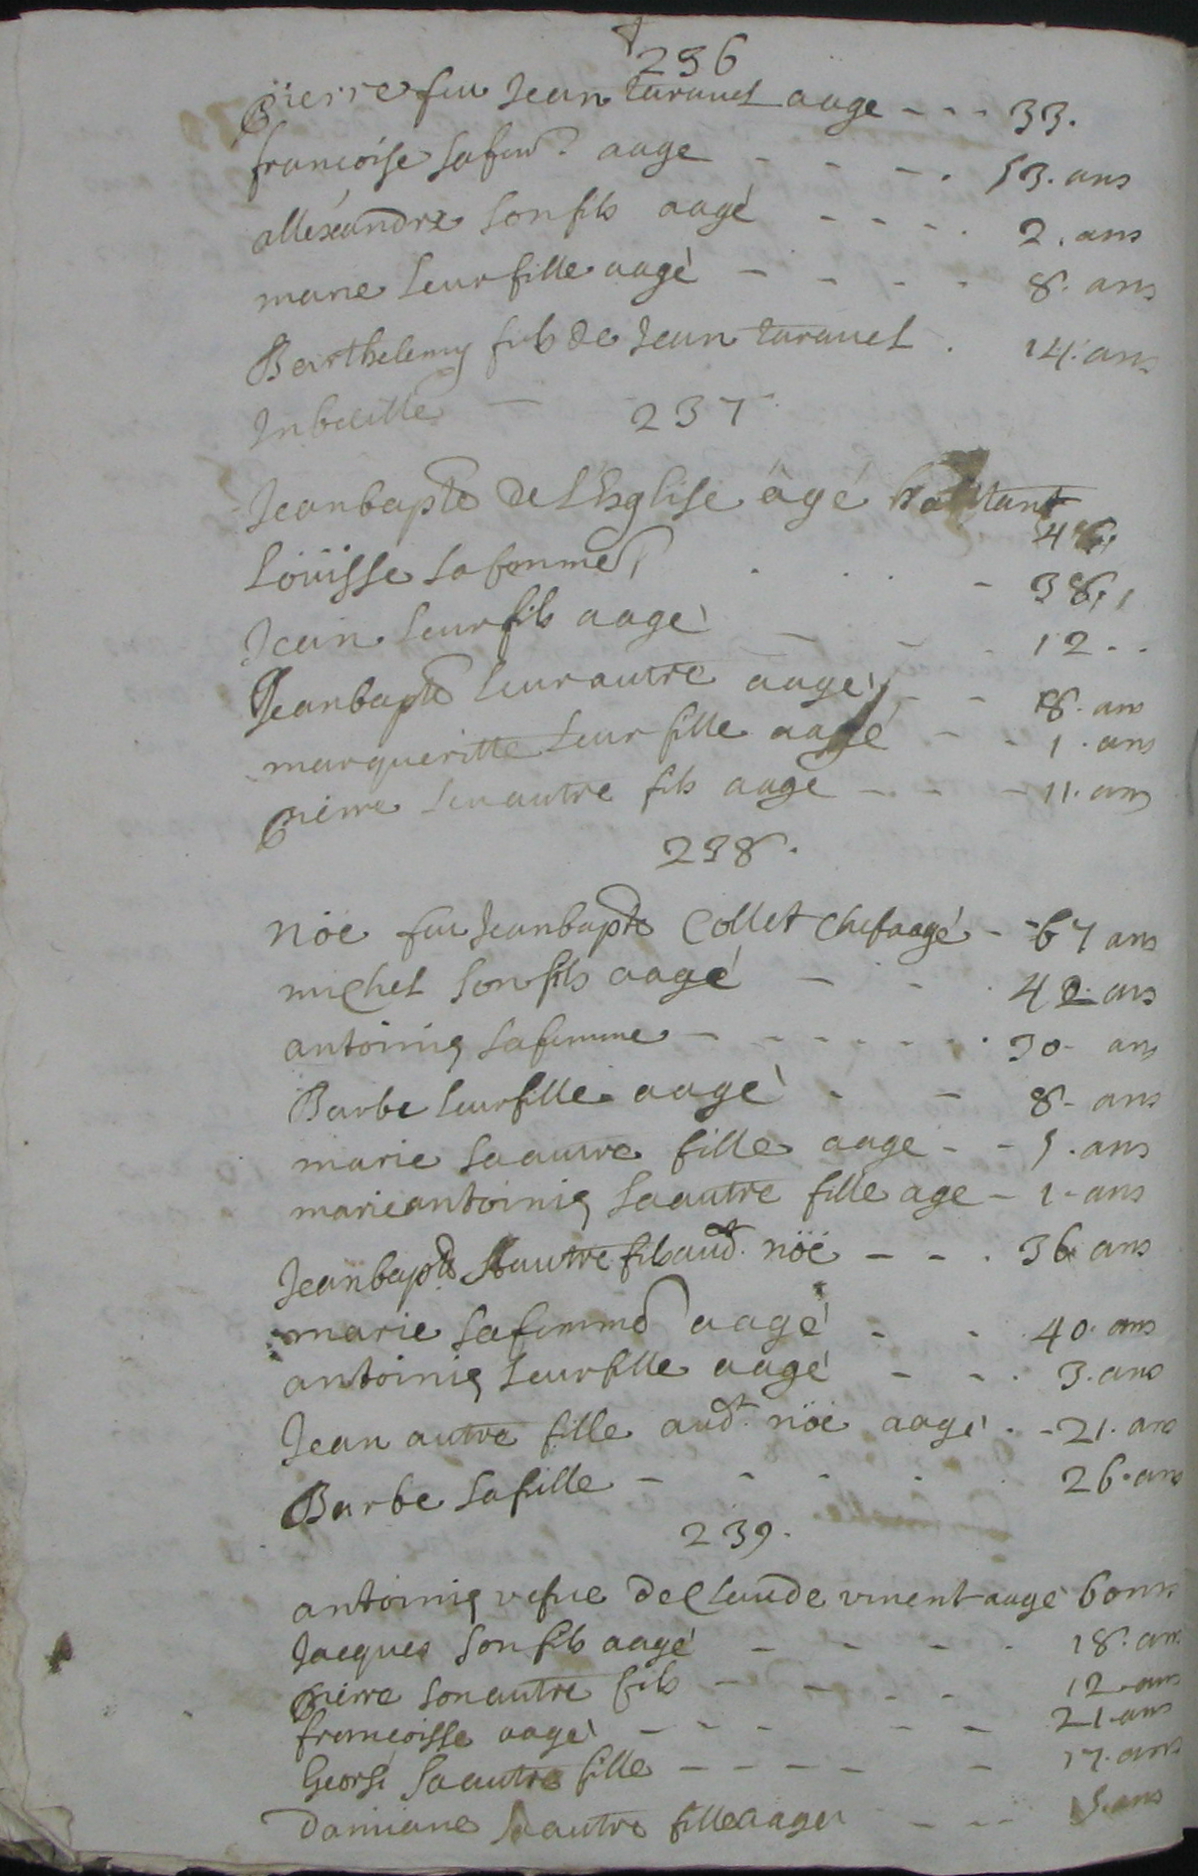 236
Pierre feu Jean taravel aage - - - 33.
francoise safem? aage - - - . 53. ans
allexandre son fils aagé - - - . 2. ans
marie leur fille aagé - - - - 8. ans
Barthelemy fils de Jean taravel . 14. ans
Inbecille - 237
Jeanbapte De L'Esglise agé
46,
Loüisse safemme, . . . - 38,,
Jean leur fils aagé - - - 12 . .
Jeanbapte leur autre aagé - - 8. ans
margueritte leur fille aagé - - 1. ans
pierre leur autre fils aagé - - - 11. ans
238.
nöe feu Jeanbapte Collet chef aagé - - 67 ans
michel son fils aagé - - . 42. ans
antoinie safemme - - - - - - . 30 - ans
Barbe leur fille aagé - - 8 - ans
marie sa autre fille aage - - 5. ans
marie antoinie sa autre fille age - 1 - ans
Jeanbapte autre fils audt. nöë - - . 36 ans
marie safemme aagé - - 40. ans
antoinie leur fille aagé - - . 3. ans
Jean autre fille audt. nöe aagé . - 21. ans
Barbe safille - - - . . 26. ans
239.
antoinie vefue de Claude vincent aagé 60 ans
Jacques son fils aagé - - - . 18. ans
pierre son autre fils - - - - 12 - ans
francoisse aagé - - - - - 21. ans
George sa autre fille - - - - - 17. ans
Damiane sa autre fille aagée - - - 15. ans